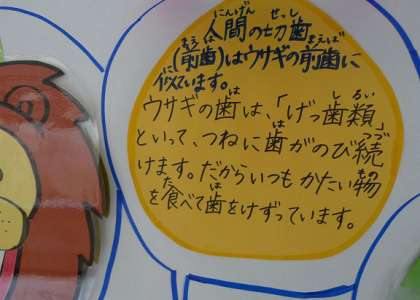 人間の切歯
(前歯)はウサギの前歯に
似ています。
ウサギの歯は、「げっ歯類」
といって、つねに歯がのび続
けます。だからいつもかたい物
を食べて歯をけずっています。